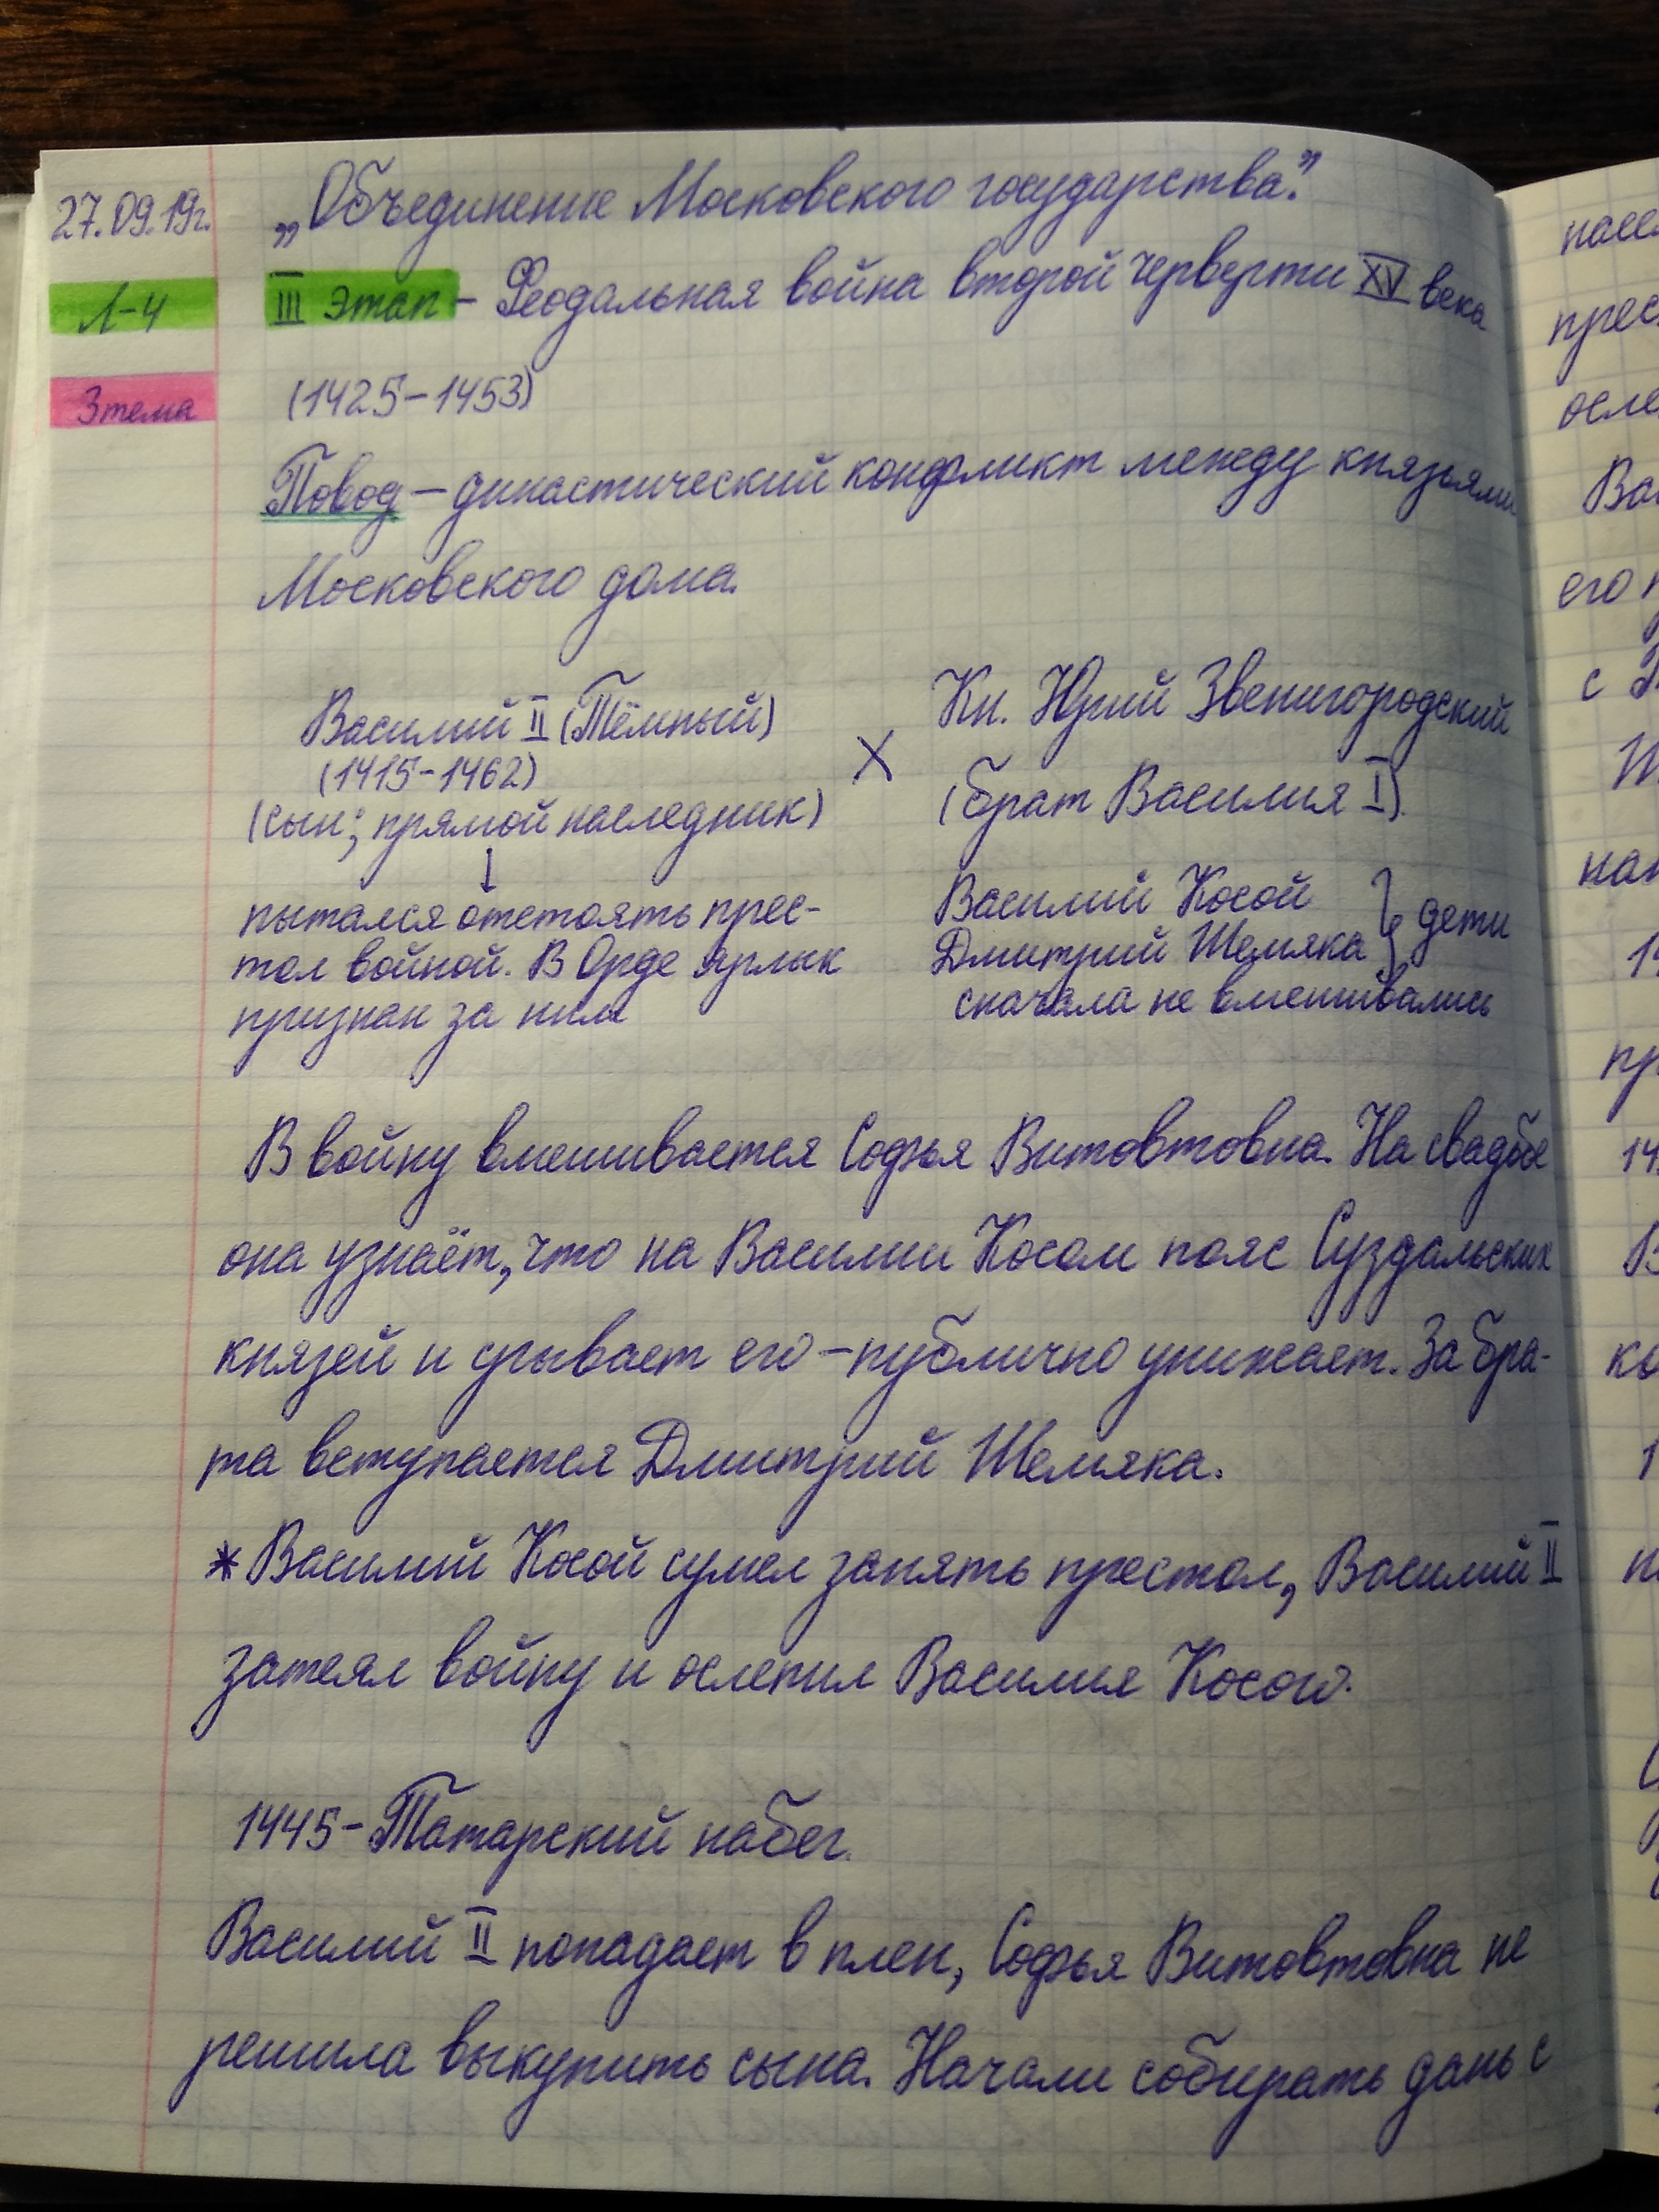 27.09.19г.
„Объединение Московского государства."
Л-4
III этап - Феодальная война второй черверти XV века
3 тема
(1425-1453)
Повод - династический конфликт между князьями
Московского дома.
Василий II (Тёмный)
(1415-1462)
(сын; прямой наследник)
↓
пытался отстоять прес-
тол войной. В Орде ярлык
признан за ним
X
Кн. Юрий Звенигородский
(брат Василия I).
Василий Косой
Дмитрий Шемяка } дети
сначала не вмешивались
В войну вмешивается Софья Витовтовна. На свадьбе
она узнаёт, что на Василии Косом пояс Суздальских
князей и срывает его - публично унижает. За бра-
та вступается Дмитрий Шемяка.
* Василий Косой сумел занять престол, Василий II
затеял войну и ослепил Василия Косого.
1445 - Татарский набег.
Василий II попадает в плен, Софья Витовтовна не
решила выкупить сына. Начали собирать дань с
его
с